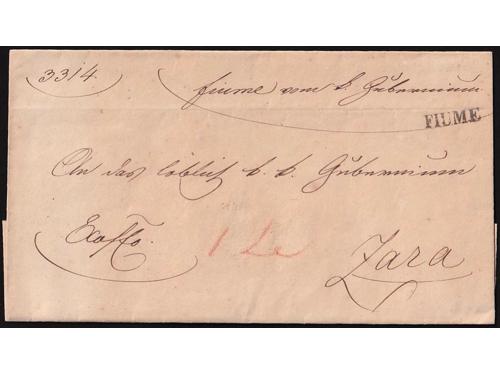 3314.
Fiume vom k. Gubernium
FIUME
An das löblich k. k. Gubernium
Exoffo.
Zara